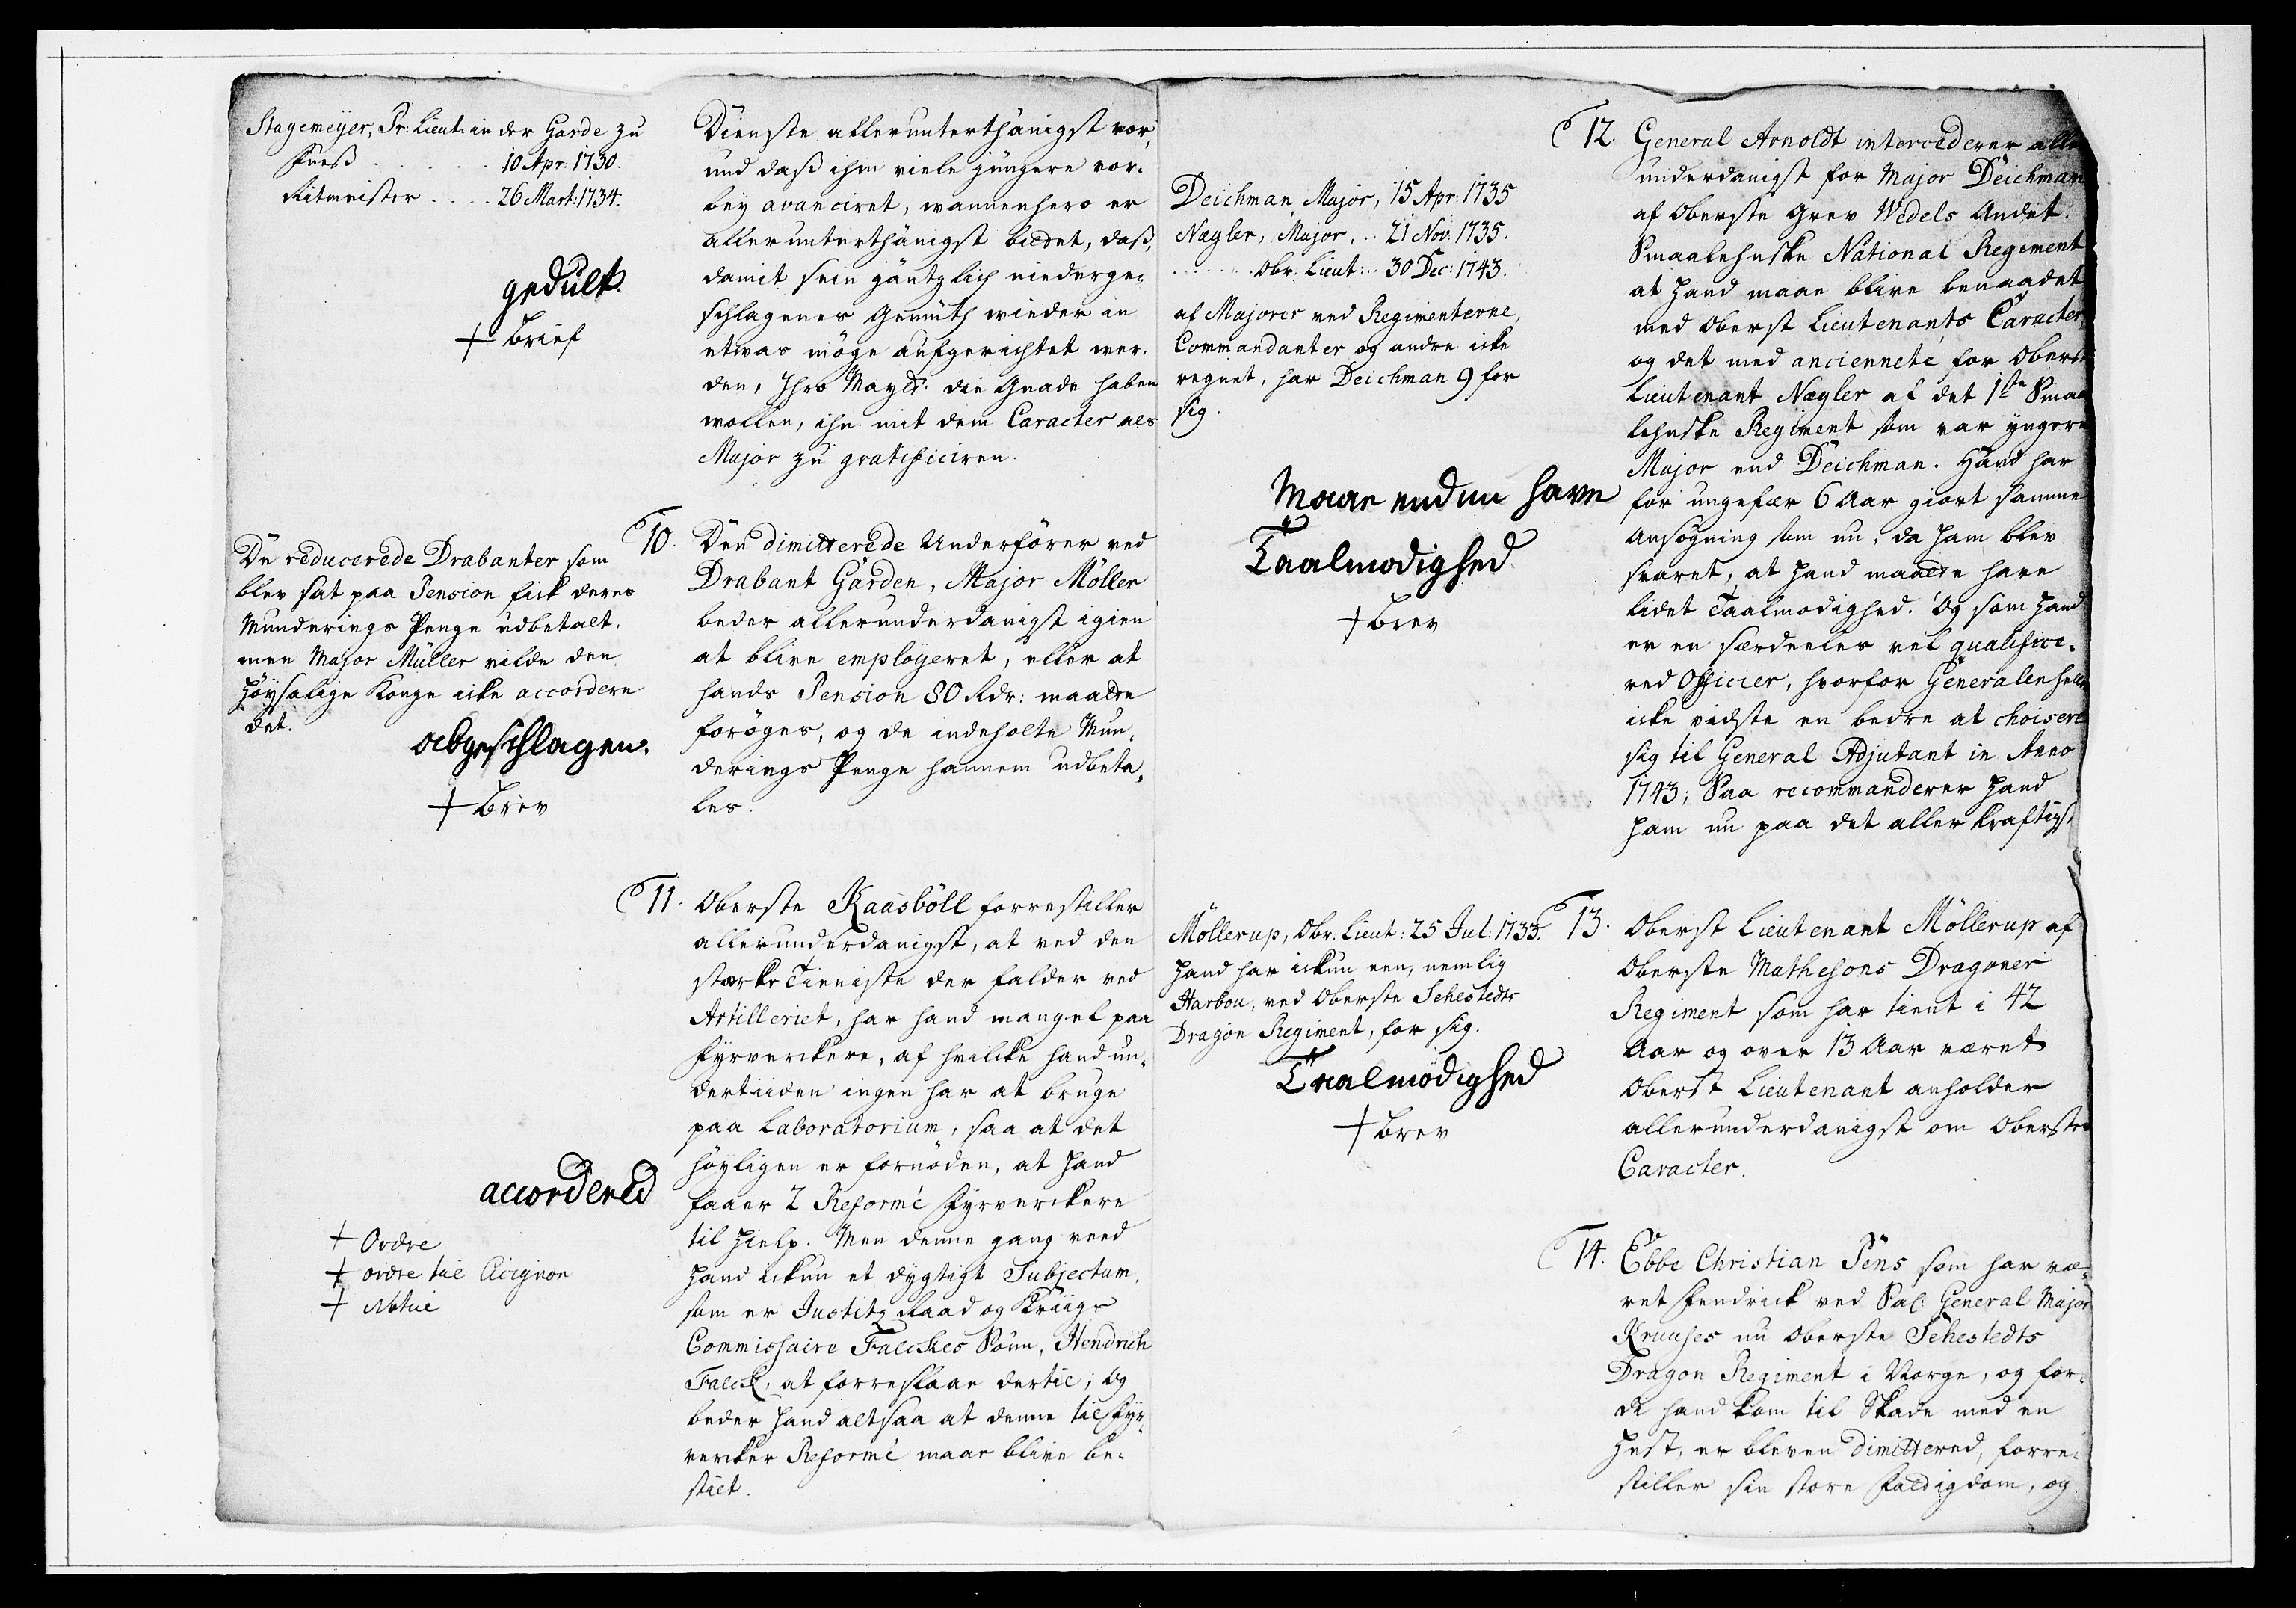 Stagemeyer, Pr: Lieut: in der Garde zu
Fueß . . . . . . 10 Apr: 1730.
Ritmeister . . . . 26 Mart: 1734.
gedult.
+ brief
Dienste allerunterthänigst vor,
und daß ihm viele jüngere vor-
bey avanciret, wannenhero er
allerunterthänigst bittet, daß,
damit sein gäntzlich niederge-
schlagenes Gemüth wieder in
etwas möge aufgerichtet wer-
den, Ihro Maytt: die Gnade haben
wollen, ihn mit dem Caracter als
Major zu gratificiren.
De reducerede Drabanter som
blev sat paa Pension fick deres
Munderings Penge udbetalt,
men Major Müller vilde den
høysalige Konge icke accordere
det.
abgeschlagen.
+ brev
10. Den dimitterede Underförer ved
Drabant Garden, Major Möller
beder allerunderdanigst igien
at blive employeret, eller at
hands Pension 80 Rdr: maatte
forøges, og de indeholte Mun-
derings Penge hannem udbeta-
les.
accordered
+ Ordre
+ ordre til
+ Notice
11. Oberste Kaasböll forrestiller
allerunderdanigst, at ved den
starke Tieniste der falder ved
Artilleriet, har hand mangel paa
Fyrverckere, af hvilcke hand un-
dertiiden ingen har at bruge
paa Laboratorium, saa at det
høyligen er fornøden, at hand
faaer 2 Reformé Fyrverckere
til hielp. Men denne gang veed
hand ickun et dygtigt Subjectum,
som er Justitz Raad og Kriigs
Commissaire Falckes Sönn, Hendrich
Falck, at forreslaae dertil; og
beder hand altsaa at denne til Fyr-
vercker Reformé maae blive be-
stilt.
Deichman, Major, 15 Apr: 1735
Nægler, Major, .. 21 Nov: 1735.
. . . . . . Obr. Lieut: .. 30 Dec: 1743.
af Majorer ved Regimenterne,
Commandanter og andre icke
regnet, har Deichman 9 for
sig.
Maae endnu have
Taalmodighed
+ brev
12. General Arnoldt intercederer aller
underdanigst for Major Deichman
af Oberste Grev Wedels Andet
Smaalehnske National Regiment
at hand maae blive benaadet
med Oberst Lieutenants Caracter,
og det med ancienneté for Oberst
Lieutenant Nægler af det 1ste Smaa
lehnske Regiment som var yngere
Major end Deichman. Hand har
for ungefær 6 Aar giort samme
Ansøgning som nu, da ham blev
svaret, at hand maatte have
lidet Taalmodighed. Og som hand
er en særdeeles vel qualifice-
red Officier, hvorfor Generalen heller
icke vidste en bedre at choisere
sig til General Adjutant in Anno
1743; Saa recommanderer hand
ham nu paa det aller kraftigst.
Möllerup, Obr. Lieut: 25 Jul: 1735.
Hand har ickun een, nemlig
Harbou, ved Oberste Sehestedts
Dragon Regiment, for sig.
Taalmodighed
+ brev
13. Oberst Lieutenant Möllerup af
Oberste Mathesons Dragoner
Regiment som har tient i 42
Aar og over 13 Aar været
Oberst Lieutenant anholder
allerunderdanigst om Oberstes
Caracter.
14. Ebbe Christian Pens som har væ-
ret Fendrick ved Sal: General Major
Kruuses nu Oberste Sehestedts
Dragon Regiment i Norge, og for-
di hand kom til Skade med en
Hest, er bleven dimittered, forre-
stiller sin store Fattigdom, og